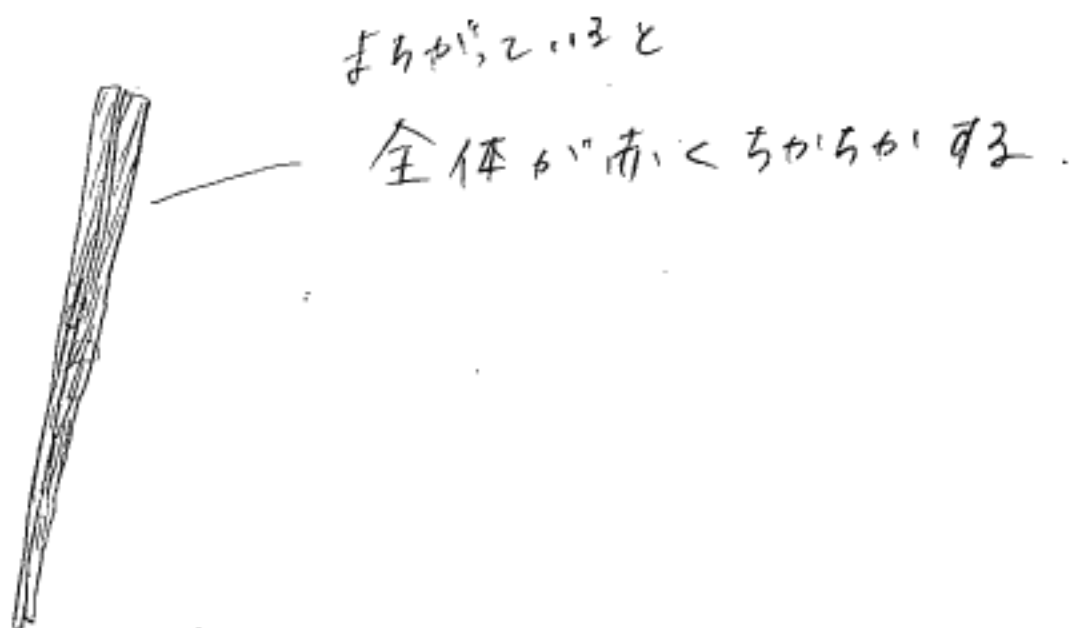 まちがっていると
全体が赤くちかちかする.